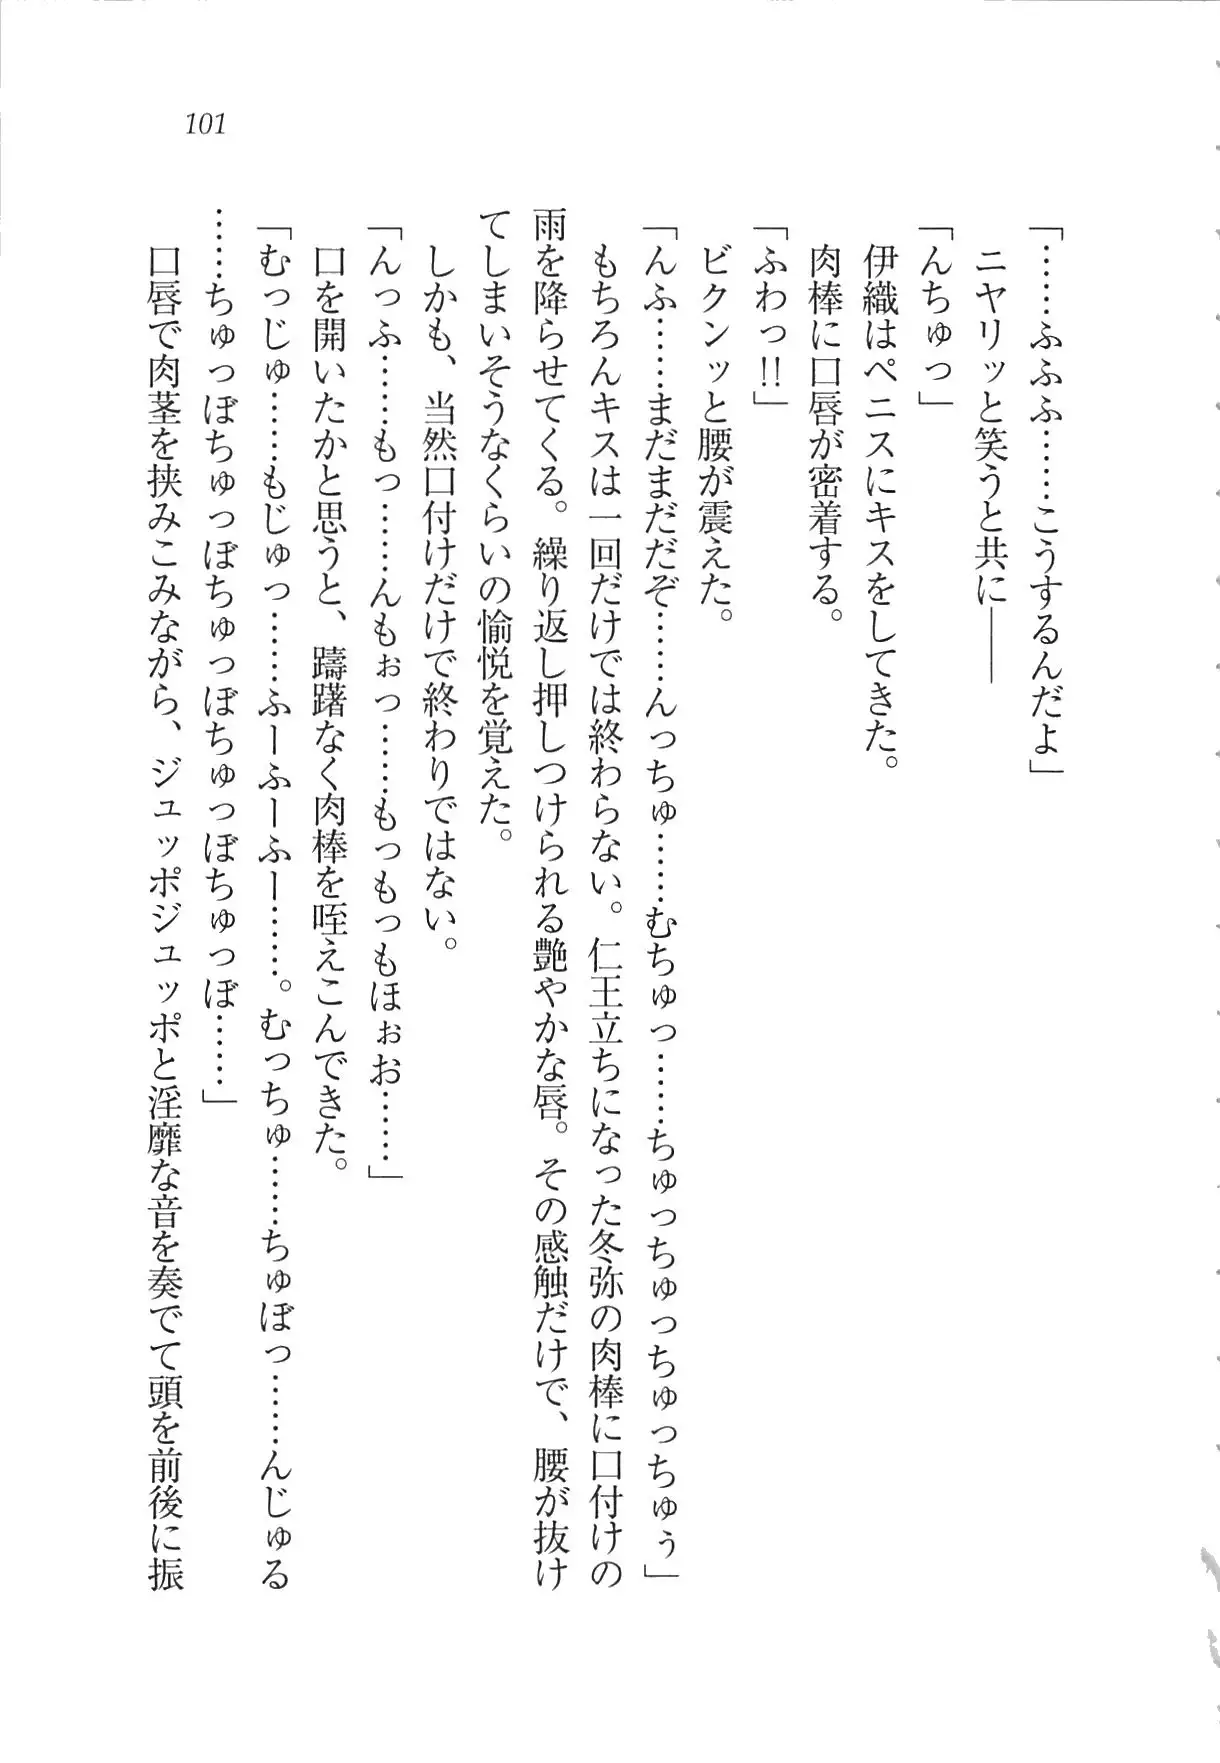 101
「……ふふふ……こうするんだよ」
ニヤリッと笑うと共に――
「んちゅっ」
伊織はペニスにキスをしてきた。
肉棒に口唇が密着する。
「ふわっ!!」
ビクンッと腰が震えた。
「んふ……まだまだだぞ……んっちゅ……むちゅっ……ちゅっちゅっちゅっちゅぅ」
もちろんキスは一回だけでは終わらない。仁王立ちになった冬弥の肉棒に口付けの
雨を降らせてくる。繰り返し押しつけられる艶やかな唇。その感触だけで、腰が抜け
てしまいそうなくらいの愉悦を覚えた。
しかも、当然口付けだけで終わりではない。
「んっふ……もっ……んもぉっ……もっもっもほぉお……」
口を開いたかと思うと、躊躇なく肉棒を咥えこんできた。
「むっじゅ……もじゅっ……ふーふーふー……。むっちゅ……ちゅぼっ……んじゅる
……ちゅっぼちゅっぼちゅっぼちゅっぼちゅっぼ……」
口唇で肉茎を挟みこみながら、ジュッポジュッポと淫靡な音を奏でて頭を前後に振